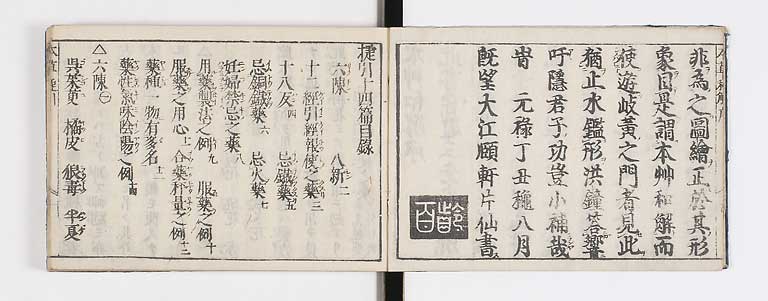 非為之圖繪正發其形
象因是謂本艸和解而
彼遊岐黃之門者見此
猶止水鑑形洪鐘答響
吁隱君子功豈小補哉
旹元祿丁丑穐八月
既望大江頤軒片仙書
捷引十四篇目錄
六陳一 八新二
十二經引經報使之藥三
十八反四 忌鐵藥五
忌銅鐵藥六 忌火藥七
妊婦禁忌之藥八
用藥製法之例九 服藥之例十
服藥之用心十一 合藥秤量之例十二
藥種一物有多名十三
藥性氣味陰陽之例十四
△六陳㊀
吳茱萸 橘皮 狼毒 半夏